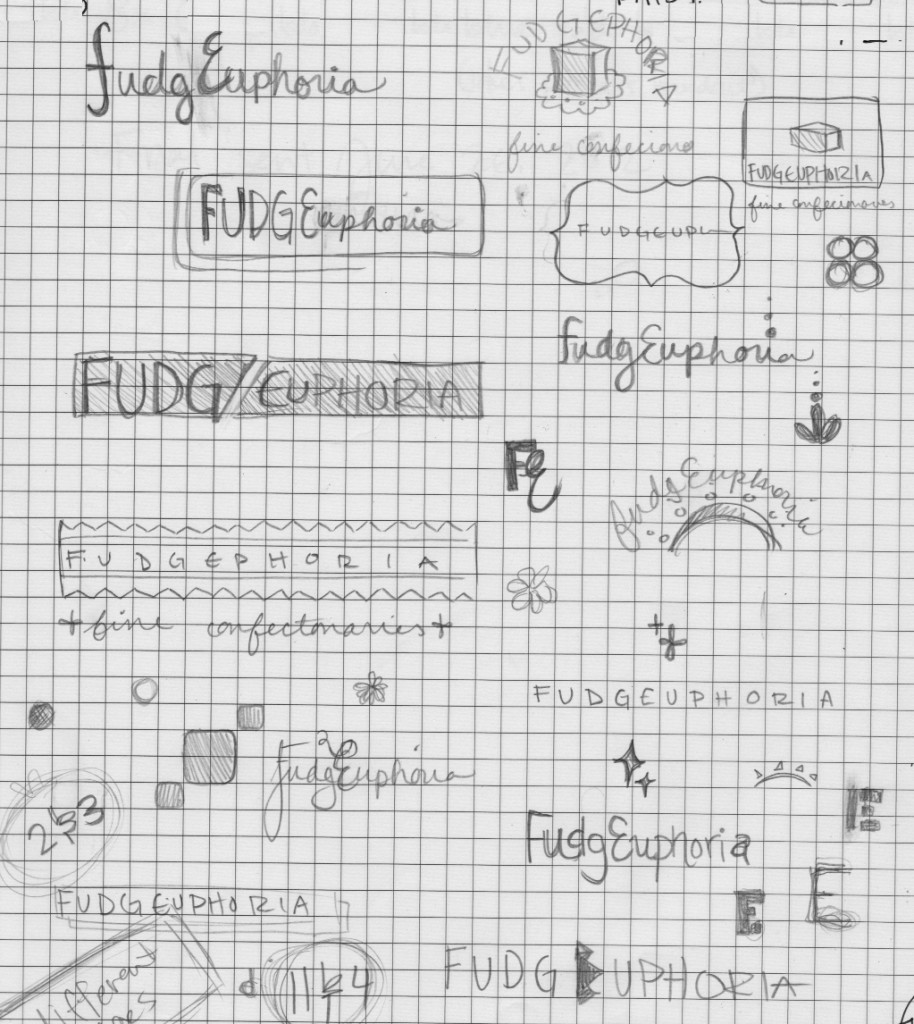 fudgEuphoria
FUDGEPHORIA
fine confeciono
FUDGEUPHORIA
fine confecionaves
FUDGEuphoria
FUDGEUPL
fudgEuphoria
FUDG/EUPHORIA
Fe
fudgEuphoria
FUDGEPHORIA
+fine confectonaries+
FUDGEUPHORIA
fudgEuphoria
FudgEuphoria
E
E
E
FUDGEUPHORIA
FUDGEUPHORIA
different